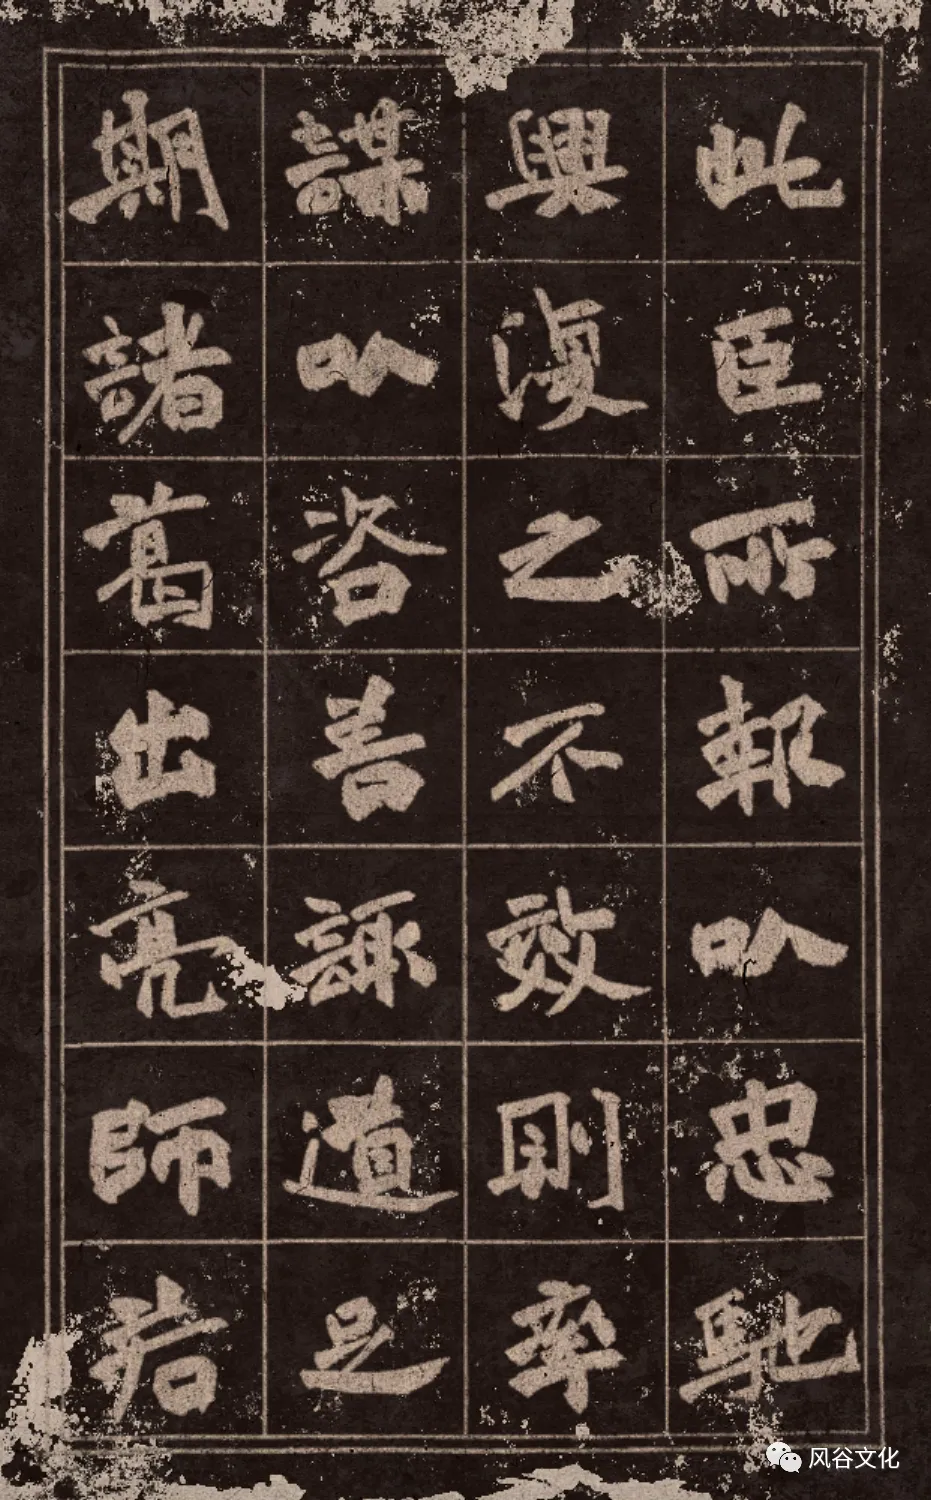 此臣所報以忠馳
興復之不效則率
謀以咨善諏道足
期諸葛出亮師若
风谷文化